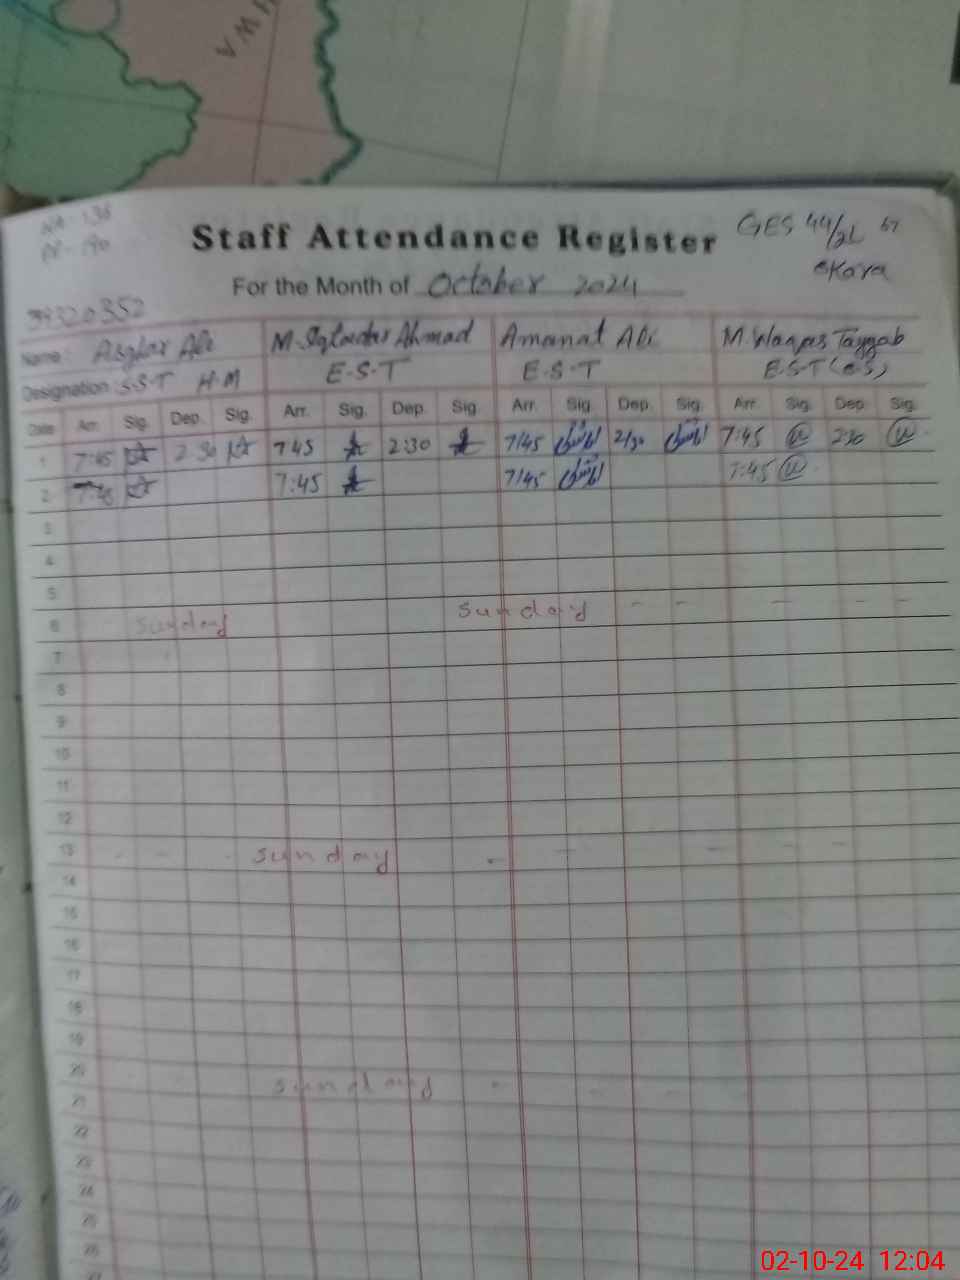 HWA
NA - 136
PP - 190
Staff Attendance Register
GES 44/2L
Okara
For the Month of October 2024
39320352
Name: Asghar Ali M. Iqtadar Ahmad Amanat Ali M. Waqas Tayyab
Designation: S.S.T H.M E.S.T E.S.T E.S.T (CS)
Date Arr. Sig. Dep. Sig. Arr. Sig. Dep. Sig. Arr. Sig. Dep. Sig. Arr. Sig. Dep. Sig.
1 7:45 2:30 7:45 2:30 7/45 2/30 7:45 2:30
2 7:45 7:45 7/45 7:45
3
4
5
6 Sunday Sunday - - - - -
7
8
9
10
11
12
13 - - - Sunday - - - - -
14
15
16
17
18
19
20 Sunday - - -
21
22
23
24
25
26
02-10-24 12:04